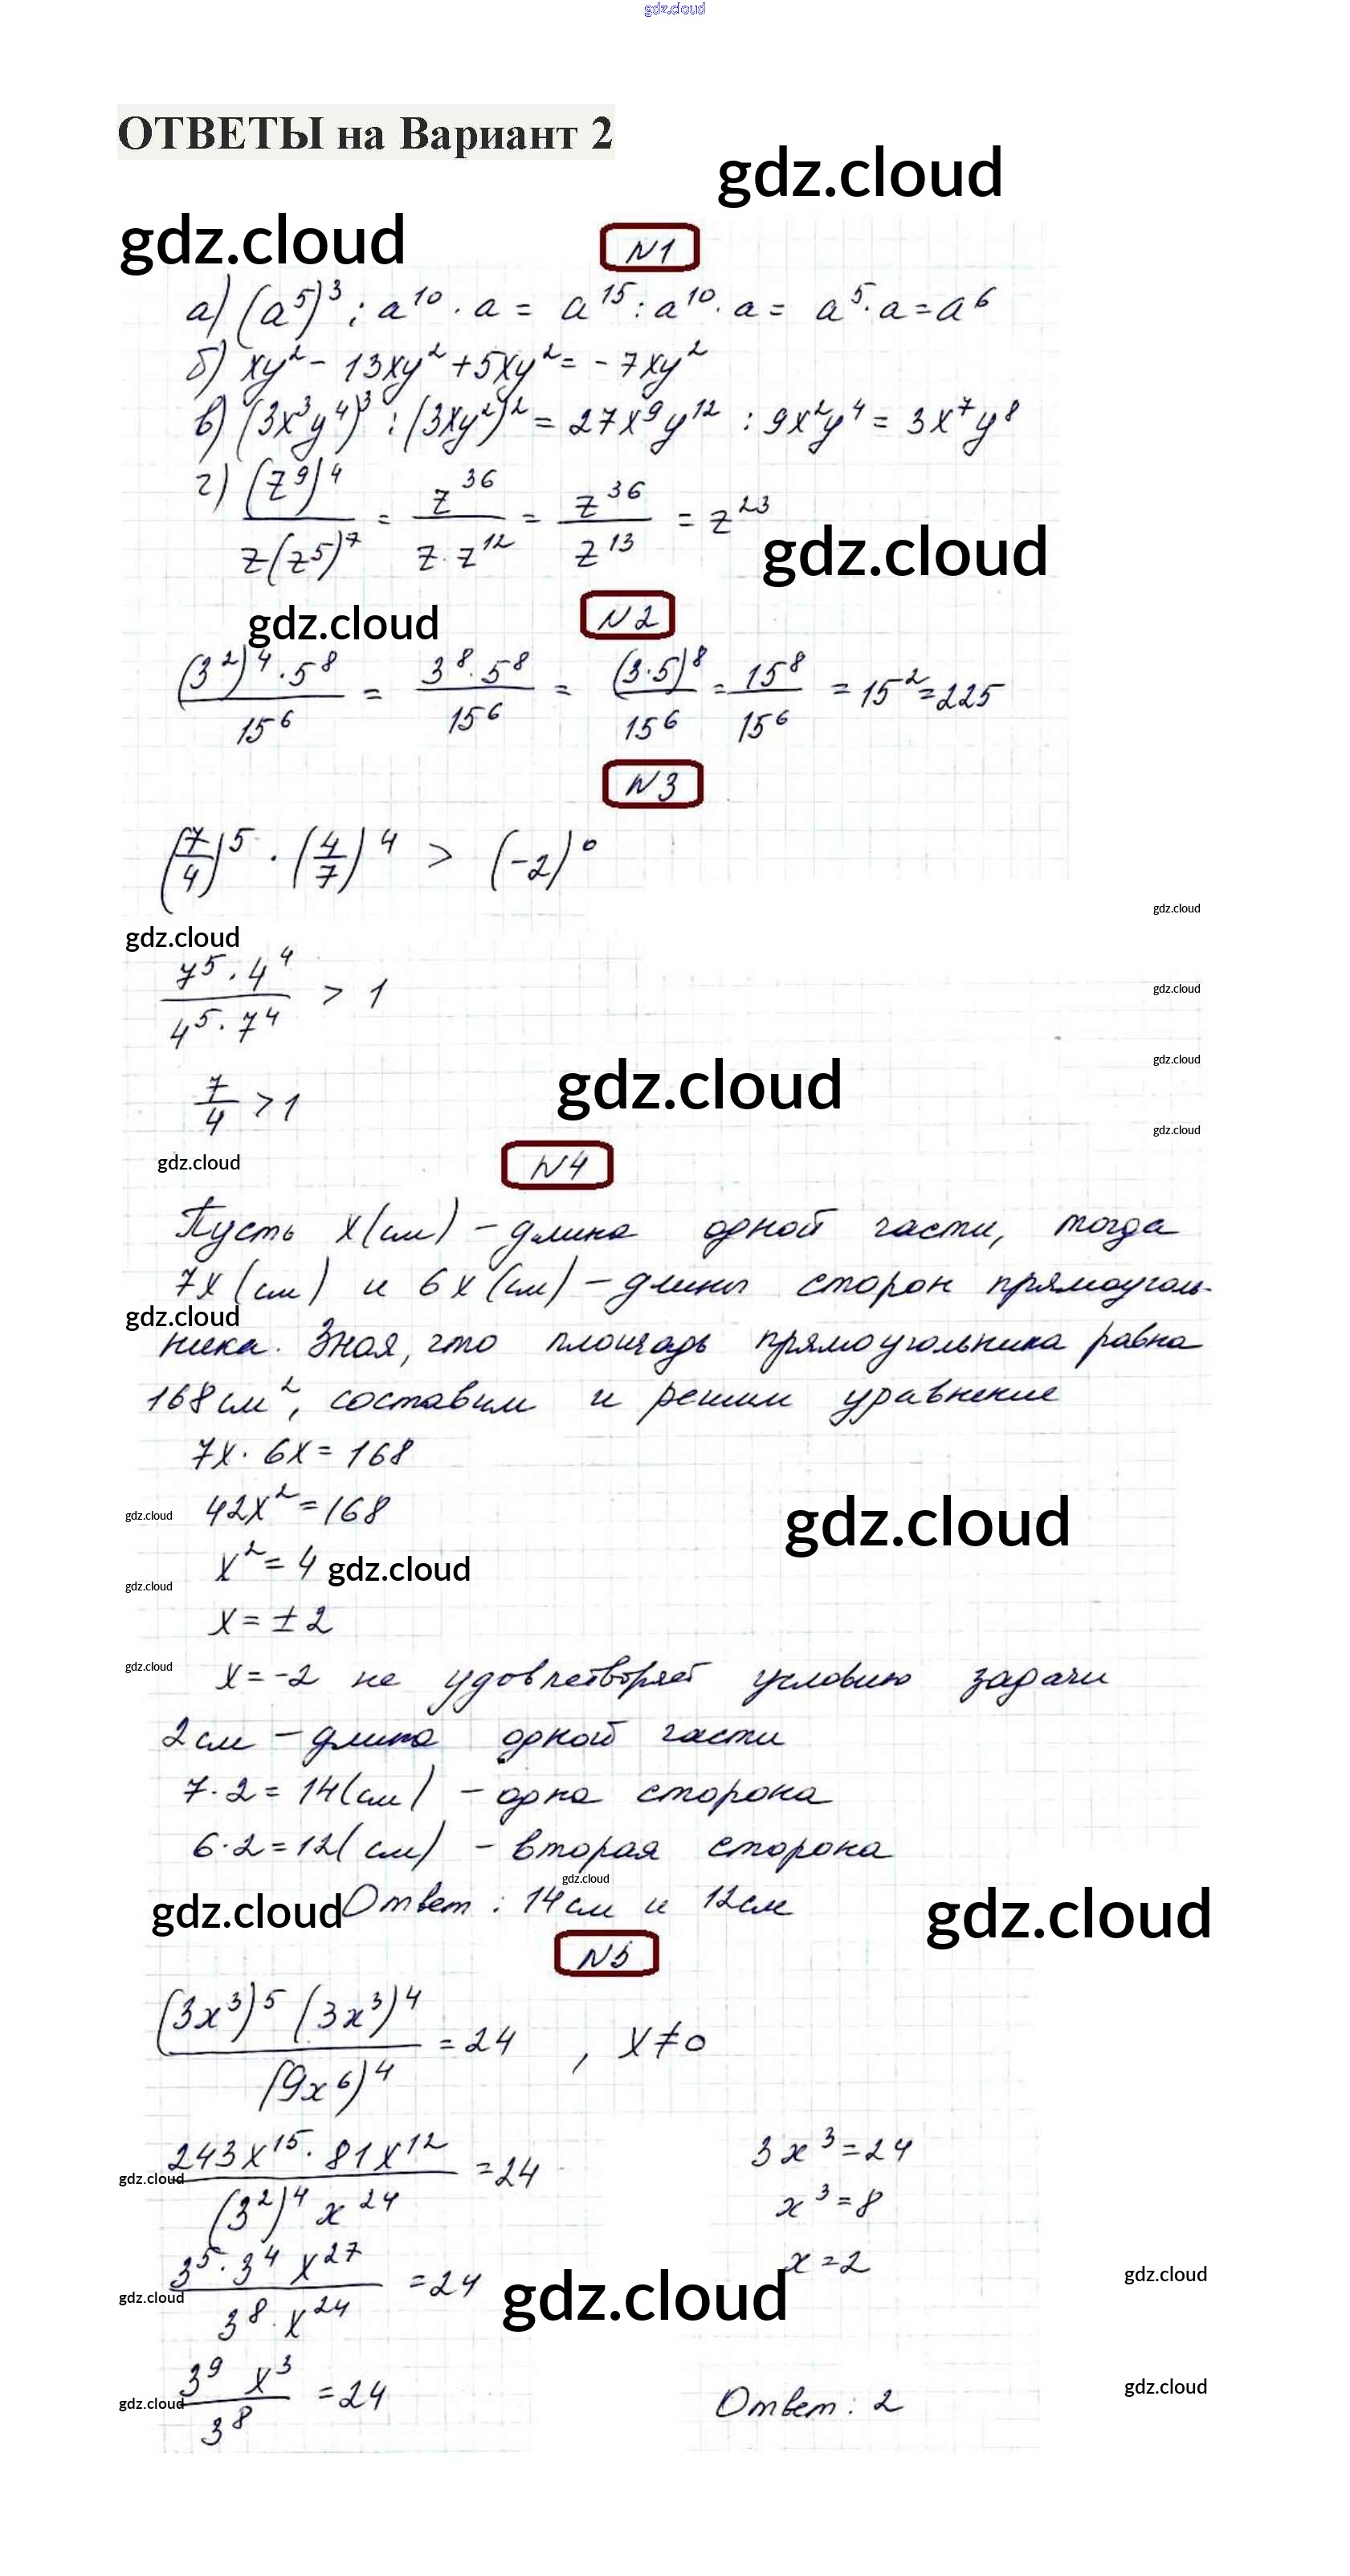 gdz.cloud
ОТВЕТЫ на Вариант 2
gdz.cloud
gdz.cloud
N1
а) (a⁵)³ : a¹⁰ · a = a¹⁵ : a¹⁰ · a = a⁵ · a = a⁶
б) xy² - 13xy² + 5xy² = -7xy²
в) (3x³y⁴)³ : (3xy²)² = 27x⁹y¹² : 9x²y⁴ = 3x⁷y⁸
г) (z⁹)⁴ / z(z⁵)⁷ = z³⁶ / z · z¹² = z³⁶ / z¹³ = z²³
gdz.cloud
gdz.cloud
N2
(3²)⁴ · 5⁸ / 15⁶ = 3⁸ · 5⁸ / 15⁶ = (3·5)⁸ / 15⁶ = 15⁸ / 15⁶ = 15² = 225
N3
(7/4)⁵ · (4/7)⁴ > (-2)⁰
gdz.cloud
gdz.cloud
7⁵ · 4⁴ / 4⁵ · 7⁴ > 1
gdz.cloud
gdz.cloud
gdz.cloud
7/4 > 1
gdz.cloud
gdz.cloud
N4
Пусть x(см) - длина одной части, тогда
7x(см) и 6x(см) - длины сторон прямоуголь-
gdz.cloud
ника. Зная, что площадь прямоугольника равна
168 см², составим и решим уравнение
7x · 6x = 168
42x² = 168
gdz.cloud
gdz.cloud
x² = 4
gdz.cloud
gdz.cloud
x = ± 2
gdz.cloud
x = -2 не удовлетворяет условию задачи
2 см - длина одной части
7·2 = 14(см) - одна сторона
6·2 = 12(см) - вторая сторона
gdz.cloud
gdz.cloud
Ответ: 14см и 12см
gdz.cloud
N5
(3x³)⁵ (3x³)⁴ / (9x⁶)⁴ = 24 , x ≠ 0
243x¹⁵ · 81x¹² / (3²)⁴ x²⁴ = 24
gdz.cloud
3⁵ · 3⁴ x²⁷ / 3⁸ · x²⁴ = 24
gdz.cloud
3⁹ x³ / 3⁸ = 24
gdz.cloud
3x³ = 24
x³ = 8
x = 2
gdz.cloud
gdz.cloud
Ответ: 2
gdz.cloud